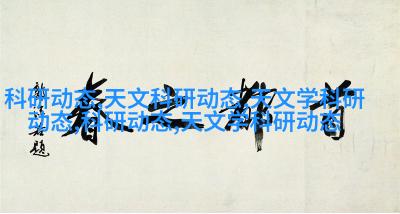 科研动态,天文科研动态,天文学科研
动态,科研动态,天文学科研动态
首都之春
郭沫若题